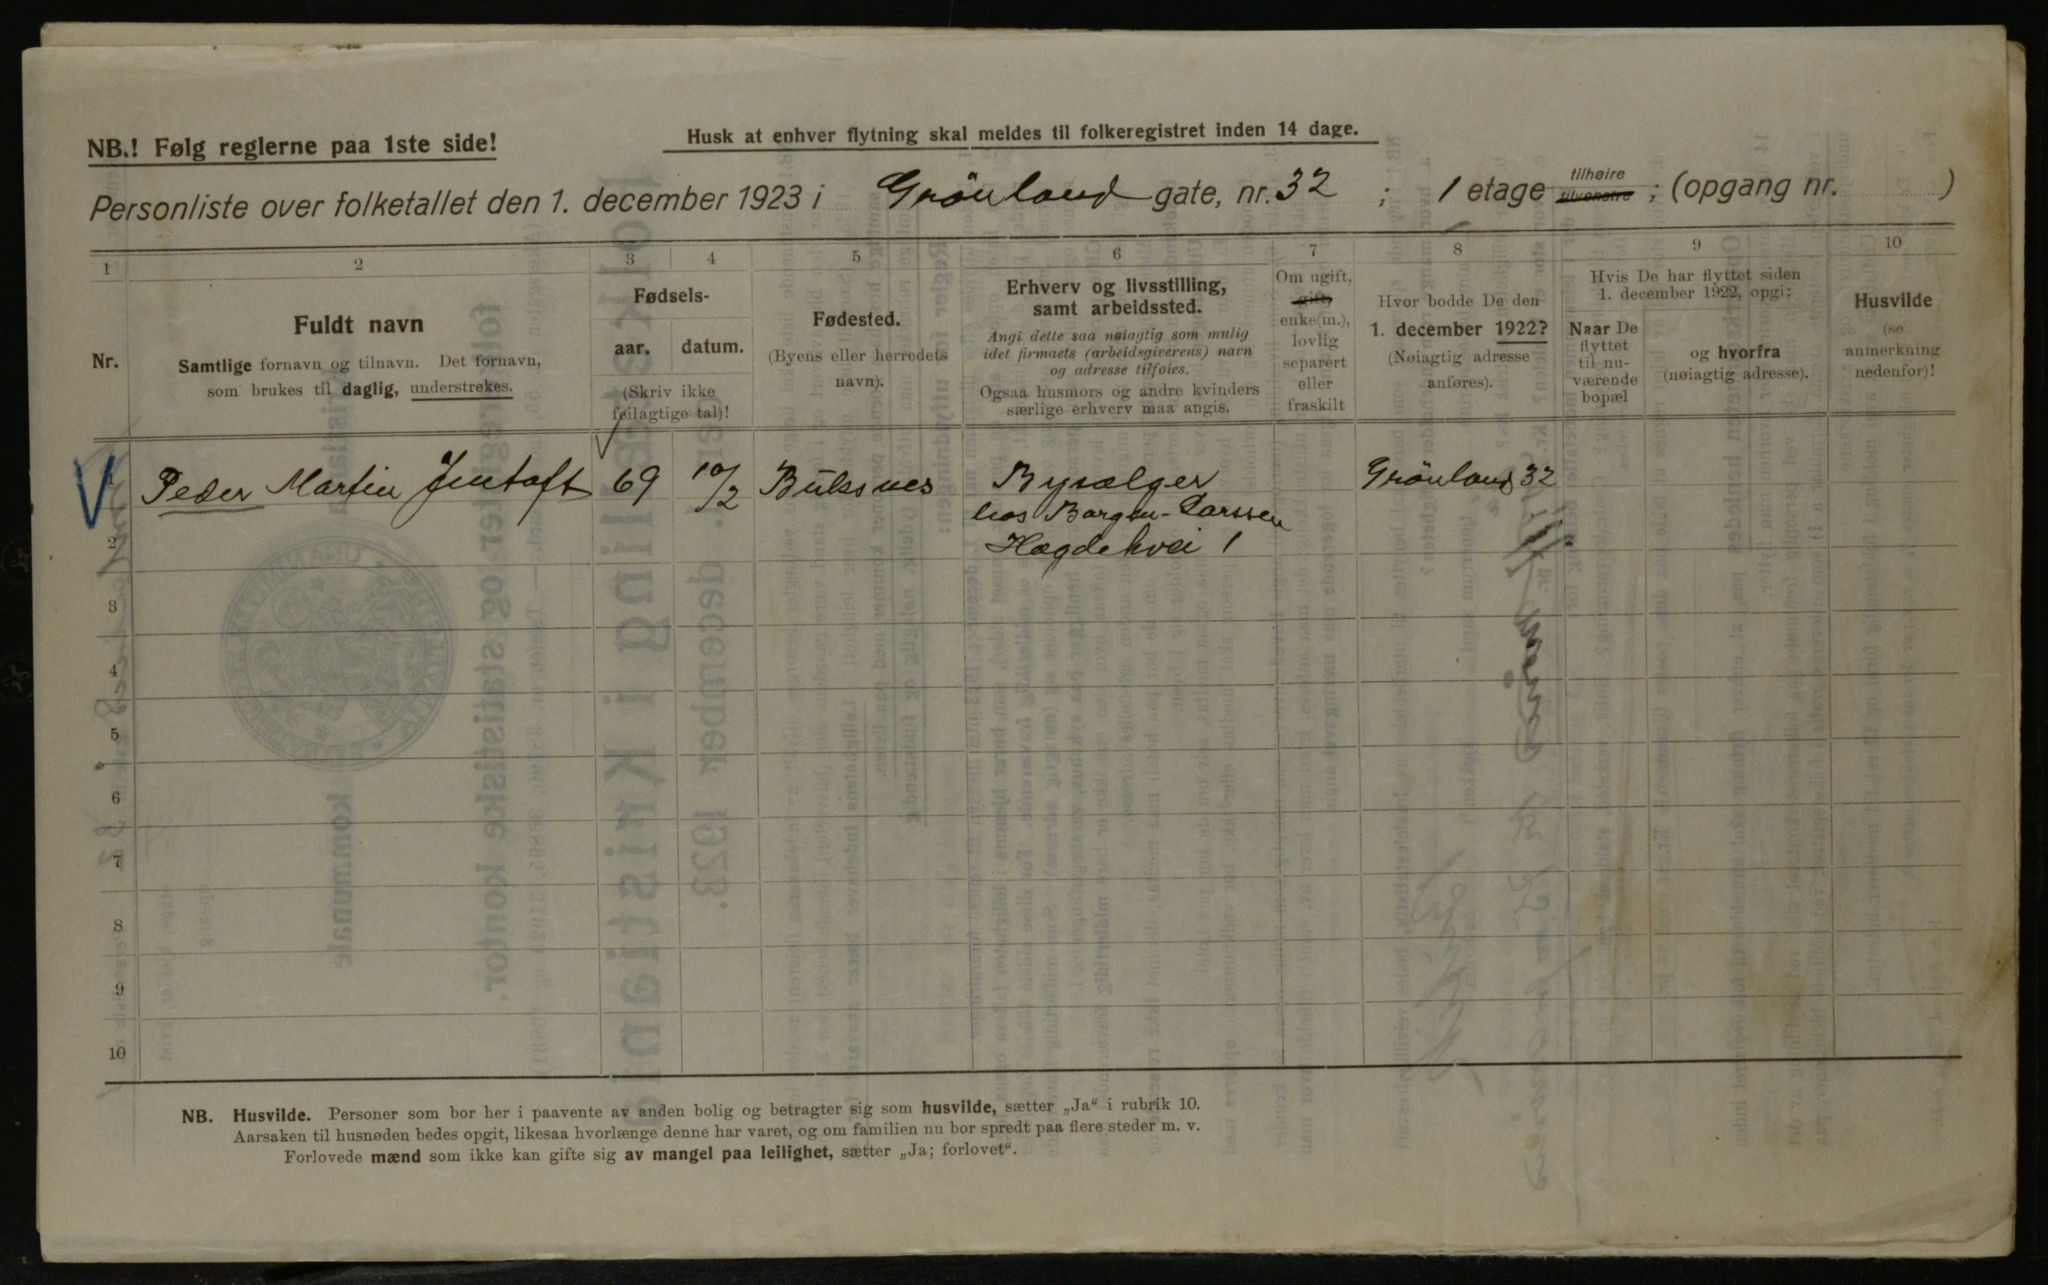 NB.! Følg reglerne paa 1ste side!
Husk at enhver flytning skal meldes til folkeregistret inden 14 dage.
Personliste over folketallet den 1. december 1923 i Grönland gate, nr. 32 ; 1 etage tilhøire tilvenstre ; (opgang nr. )
1 2 3 4 5 6 7 8 9 10
Nr.
Fuldt navn
Samtlige fornavn og tilnavn. Det fornavn,
som brukes til daglig, understrekes.
Fødsels-
aar. datum.
(Skriv ikke
feilagtige tal)!
Fødested.
(Byens eller herredets
navn).
Erhverv og livsstilling,
samt arbeidssted.
Angi dette saa nøiagtig som mulig
idet firmaets (arbeidsgiverens) navn
og adresse tilføies.
Ogsaa husmors og andre kvinders
særlige erhverv maa angis.
Om ugift,
gift,
enke(m.),
lovlig
separert
eller
fraskilt
Hvor bodde De den
1. december 1922?
(Nøiagtig adresse
anføres).
Hvis De har flyttet siden
1. december 1922, opgi:
Naar De
flyttet
til nu-
værende
bopæl
og hvorfra
(nøiagtig adresse).
Husvilde
(se
anmerkning
nedenfor)!
1 Peder Martin Jentoft 69 10/2 Buksnes Bysælger Grönland 32
hos Borgen-Larssen
2 Hægdehvei 1
3
4
5
6
7
8
9
10
NB. Husvilde. Personer som bor her i paavente av anden bolig og betragter sig som husvilde, sætter „Ja“ i rubrik 10.
Aarsaken til husnøden bedes opgit, likesaa hvorlænge denne har varet, og om familien nu bor spredt paa flere steder m. v.
Forlovede mænd som ikke kan gifte sig av mangel paa leilighet, sætter „Ja; forlovet“.